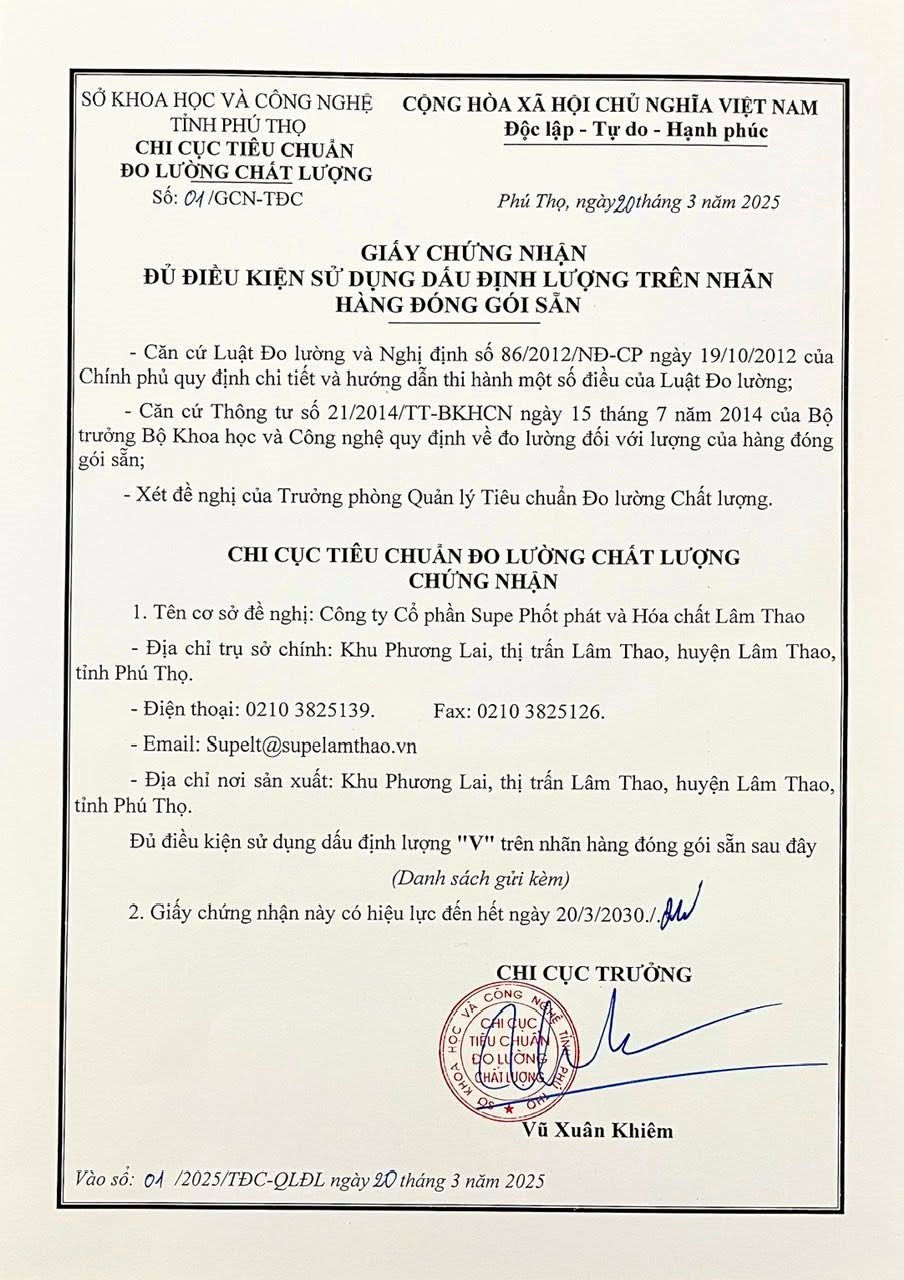 SỞ KHOA HỌC VÀ CÔNG NGHỆ
TỈNH PHÚ THỌ
CHI CỤC TIÊU CHUẨN
ĐO LƯỜNG CHẤT LƯỢNG
Số: 01/GCN-TĐC
CỘNG HÒA XÃ HỘI CHỦ NGHĨA VIỆT NAM
Độc lập - Tự do - Hạnh phúc
Phú Thọ, ngày 20 tháng 3 năm 2025
GIẤY CHỨNG NHẬN
ĐỦ ĐIỀU KIỆN SỬ DỤNG DẤU ĐỊNH LƯỢNG TRÊN NHÃN
HÀNG ĐÓNG GÓI SẴN
- Căn cứ Luật Đo lường và Nghị định số 86/2012/NĐ-CP ngày 19/10/2012 của
Chính phủ quy định chi tiết và hướng dẫn thi hành một số điều của Luật Đo lường;
- Căn cứ Thông tư số 21/2014/TT-BKHCN ngày 15 tháng 7 năm 2014 của Bộ
trưởng Bộ Khoa học và Công nghệ quy định về đo lường đối với lượng của hàng đóng
gói sẵn;
- Xét đề nghị của Trưởng phòng Quản lý Tiêu chuẩn Đo lường Chất lượng.
CHI CỤC TIÊU CHUẨN ĐO LƯỜNG CHẤT LƯỢNG
CHỨNG NHẬN
1. Tên cơ sở đề nghị: Công ty Cổ phần Supe Phốt phát và Hóa chất Lâm Thao
- Địa chỉ trụ sở chính: Khu Phương Lai, thị trấn Lâm Thao, huyện Lâm Thao,
tỉnh Phú Thọ.
- Điện thoại: 0210 3825139. Fax: 0210 3825126.
- Email: Supelt@supelamthao.vn
- Địa chỉ nơi sản xuất: Khu Phương Lai, thị trấn Lâm Thao, huyện Lâm Thao,
tỉnh Phú Thọ.
Đủ điều kiện sử dụng dấu định lượng "V" trên nhãn hàng đóng gói sẵn sau đây
(Danh sách gửi kèm)
2. Giấy chứng nhận này có hiệu lực đến hết ngày 20/3/2030./.
CHI CỤC TRƯỞNG
SỞ KHOA HỌC VÀ CÔNG NGHỆ TỈNH PHÚ THỌ
CHI CỤC
TIÊU CHUẨN
ĐO LƯỜNG
CHẤT LƯỢNG
Vũ Xuân Khiêm
Vào sổ: 01 /2025/TĐC-QLĐL ngày 20 tháng 3 năm 2025